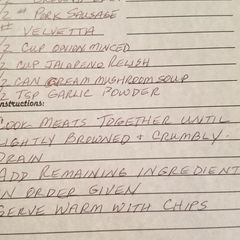 /2 # PORK SAUSAGE
# VELVETTA
/2 CUP ONION MINCED
/2 CUP JALAPENO RELISH
/2 CAN CREAM MUSHROOM SOUP
/2 TSP GARLIC POWDER
nstructions:
COOK MEATS TOGETHER UNTIL
IGHTLY BROWNED & CRUMBLY.
DRAIN
ADD REMAINING INGREDIENT
IN ORDER GIVEN
SERVE WARM WITH CHIPS